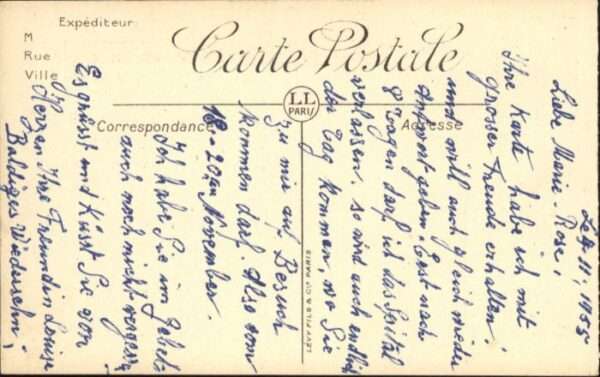 Expéditeur:
M
Rue
Ville
Carte Postale
LL
PARIS
Correspondance
Adresse
LEVY FILS & CO PARIS
11, 1955
Liebe Marie-Rose,
Ihre Karte habe ich mit
grosser Freude erhalten!
und will auch gleich wieder
Antwort geben. Erst nach
8 Tagen darf ich das Spital
verlassen. so wird auch endlich
der Tag kommen wo Sie
zu mir auf Besuch
kommen darf. Also vom
18-20ten November.
Ich habe Sie im Gebet
auch noch nicht vergessen
Es grüsst und Küsst Sie von
Herzen Ihre Freundin Louise
Baldiges Wiedersehn!